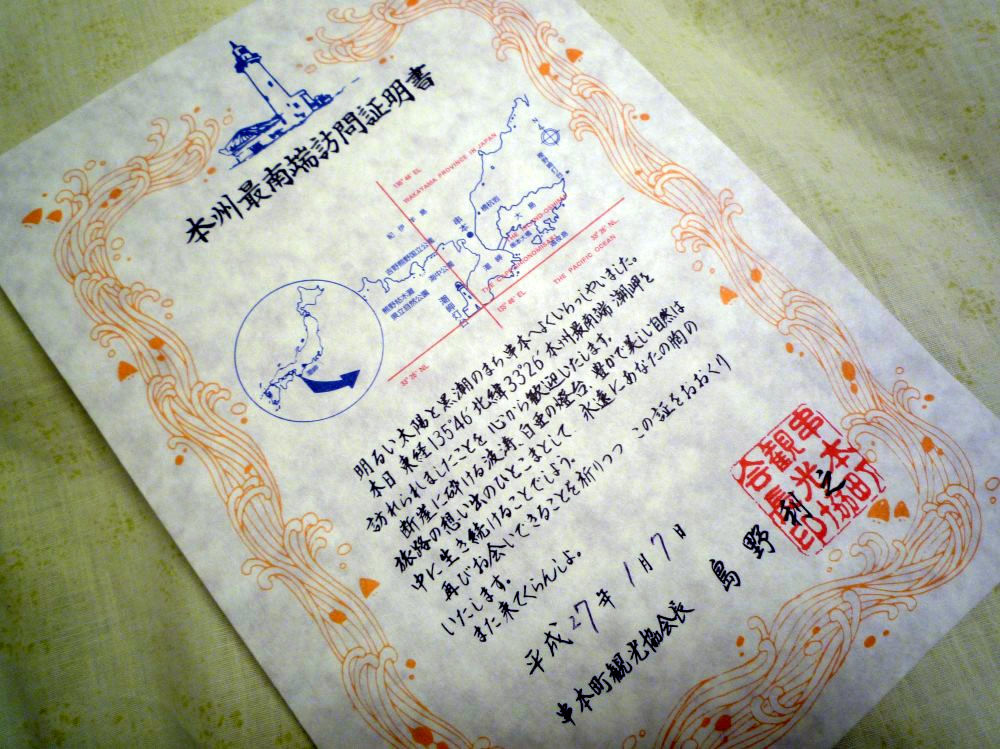 本州最南端訪問証明書
135°46' EL.
WAKAYAMA PROVINCE IN JAPAN
N
紀伊半島
串本
橋杭岩
大島
吉野熊野国立公園
海中公園
熊野枯木灘
県立自然公園
潮岬
潮岬灯台
THE PACIFIC OCEAN
33°26' NL.
135°46' EL.
33°26' NL.
明るい太陽と黒潮のまち串本へよくいらっしゃいました。
本日 東経135°46′北緯33°26′本州最南端 潮岬を
訪れられましたことを 心から歓迎いたします。
断崖に砕ける波涛、白亜の燈台、豊かで美しい自然は
旅路の想い出のひとこまとして、永遠にあなたの胸の
中に生き続けることでしょう。
再びお会いできることを祈りつつ この証をおおくり
いたします。
また来てくらんしよ。
平成27年1月7日
串本町観光協会長 島野利之
串本町
観光協
会長印